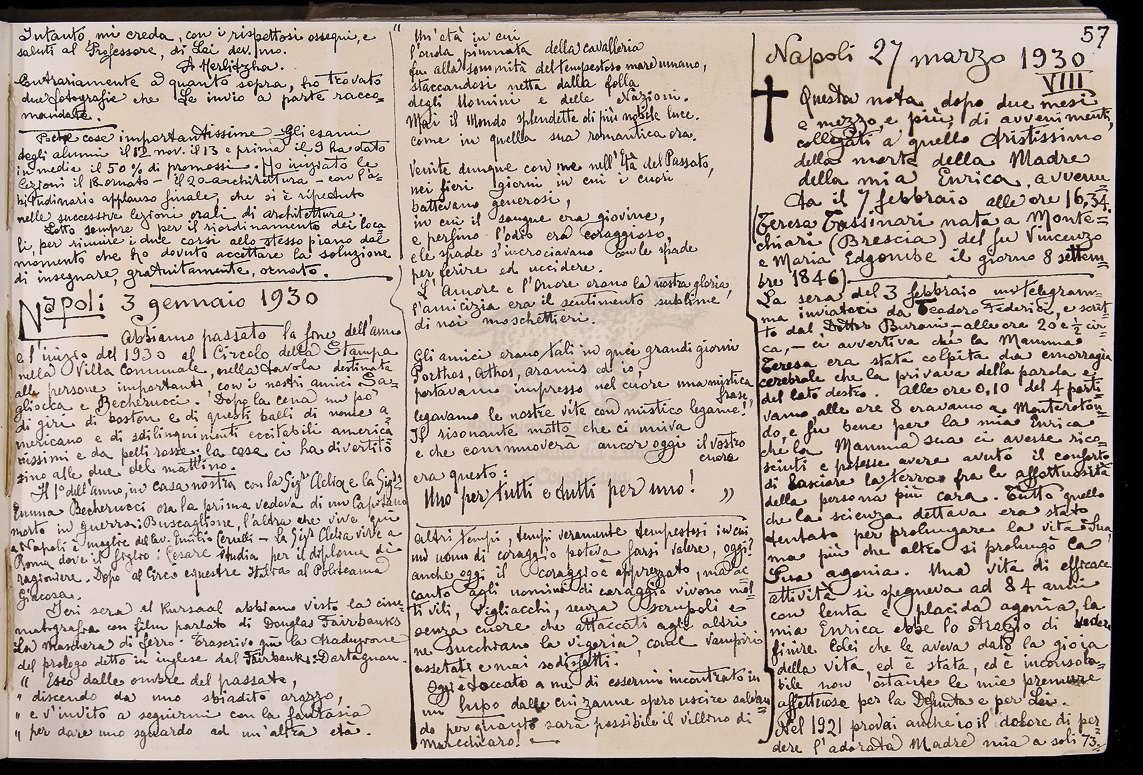 Intanto, mi creda, con i rispettosi ossequi, e
saluti al Professore, di Lei dev.mo.
A Herlitzka.
Contrariamente a quanto sopra, ho trovato
due fotografie che Le invio a parte racco=
mandate.
Poche cose importantissime - Gli esami
degli alunni il 12 nov. il 13 e prima il 9 ha dato
in media il 50% di promossi. - Ho iniziato le
lezioni il Bornato - il 20 architettura - con l'a=
bitudinario applauso finale, che si è ripetuto
nelle successive lezioni orali di architettura.
Lotto sempre per il riordinamento dei loca=
li, per riunire i due corsi allo stesso piano dal
momento che ho dovuto accettare la soluzione
di insegnare, gratuitamente, ornato.
Napoli 3 gennaio 1930
Abbiamo passato la fine dell'anno
e l'inizio del 1930 al Circolo della Stampa
nella Villa Comunale, nella tavola destinata
alle persone importanti, con i nostri amici Sa=
gliocka e Becherucci. Dopo la cena un po'
di giri di boston e di questi balli di nome a
mericano e di sdilinquimenti eccitabili america
nissimi e da pelli rosse, la cosa ci ha divertito
sino alle due del mattino.
Il 1º dell'anno, in casa nostra con la Sigra Clelia e la Sigra
Emma Becherucci ora la prima vedova di un Capitano
morto in guerra: Buscaglione, l'altra che vive qui
a Napoli è moglie dell'av. Emilio Cerulli - la Sigra Clelia vive a
Roma dove il figlio: Cesare studia per il diploma di
ragioniere. Dopo al Circo equestre Italia al Politeama
Giacosa.
Ieri sera al Kursaal abbiamo visto la cine=
matografia con film parlato di Douglas Fairbanks
La maschera di ferro. Trascrivo qui la traduzione
del prologo detto in inglese dal Fairbanks: Dartagnan.
" Esco dalle ombre del passato,
" discendo da uno sbiadito arazzo,
" e v'invito a seguirmi con la fantasia
" per dare uno sguardo ad un'altra età.
" Un'età in cui
l'onda piumata della cavalleria
fu alla sommità del tempestoso mare umano,
staccandosi netta dalla folla
degli Uomini e delle Nazioni.
Mai il Mondo splendette di più nobile luce.
come in quella sua romantica ora.
Venite dunque con me nell'Età del Passato,
nei fieri giorni in cui i cuori
battevano generosi,
in cui il sangue era giovine,
e perfino l'odio era coraggioso,
e le spade s'incrociavano con le spade
per ferire ed uccidere.
L'Amore e l'Onore erano la nostra gloria,
l'amicizia era il sentimento sublime,
di noi moschettieri.
Gli amici erano tali in quei grandi giorni
Porthos, Athos, Aramis ed io,
portavamo impressa nel cuore una mistica
frase,
legavamo le nostre vite con mistico legame!
Il risonante motto che ci univa
e che commuoverà ancor oggi il vostro
cuore
era questo:
Uno per tutti e tutti per uno! "
Altri tempi, tempi veramente tempestosi in cui
un uomo di coraggio poteva farsi valere, oggi?
anche oggi il coraggio è apprezzato, ma ac
canto agli uomini di coraggio vivono mol=
ti vili, vigliacchi, senza scrupoli e
senza cuore che attaccati agli altri
ne succhiano la vigoria, come vampiri
assetati e mai sodisfatti.
Oggi è toccato a me di essermi incontrato in
un lupo dalle cui zanne spero uscire salvan=
do per quanto sarà possibile il villino di
Marechiaro!
57
Napoli 27 marzo 1930
VIII
Questa nota, dopo due mesi
e mezzo e più, di avvenimenti,
collegati a quello tristissimo
della morte della Madre
della mia Enrica, avvenu
ta il 7 febbraio alle ore 16,34.
Teresa Tassinari nata a Monte=
chiari (Brescia) del fu Vincenzo
e Maria Edgombe il giorno 8 settem=
bre 1846)
La sera del 3 febbraio un telegram=
ma inviatoci da Teodoro Federici, e scrit=
to dal Dottor Buroni - alle ore 20 e ½ cir=
ca, - ci avvertiva che la Mamma
Teresa era stata colpita da emorragia
cerebrale che la privava della parola e
del lato destro. Alle ore 0,10 del 4 parti
vamo, alle ore 8 eravamo a Monteroton=
do, e fu bene per la mia Enrica
che la Mamma sua ci avesse rico=
sciuti e potesse avere avuto il conforto
di lasciare la terra fra le affettuosità
della persona più cara. Tutto quello
che la scienza dettava era stato
tentato per prolungare la vita Sua,
ma più che altro si prolungò la
Sua agonia. Una vita di efficace
attività si spegneva ad 84 anni
con lenta e placida agonia, la
mia Enrica ebbe lo strazio di vedere
finire Colei che le aveva dato la gioia
della vita, ed è stata, ed è inconsola=
bile non'ostante le mie premure
affettuose per la Defunta e per Lei.
Nel 1921 provai anche io il dolore di per
dere l'adorata Madre mia a soli 73=